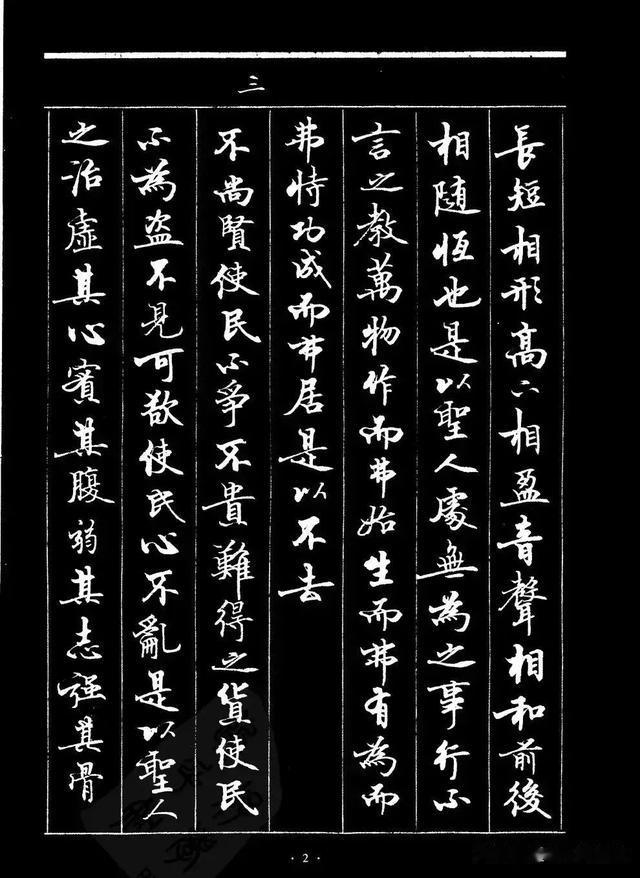 長短相形高下相盈音聲相和前後
相随恆也是以聖人處無為之事行不
言之教萬物作而弗始生而弗有為而
弗恃功成而弗居是以不去
三
不尚賢使民不爭不貴難得之貨使民
不為盗不見可欲使民心不亂是以聖人
之治虛其心實其腹弱其志强其骨
· 2 ·